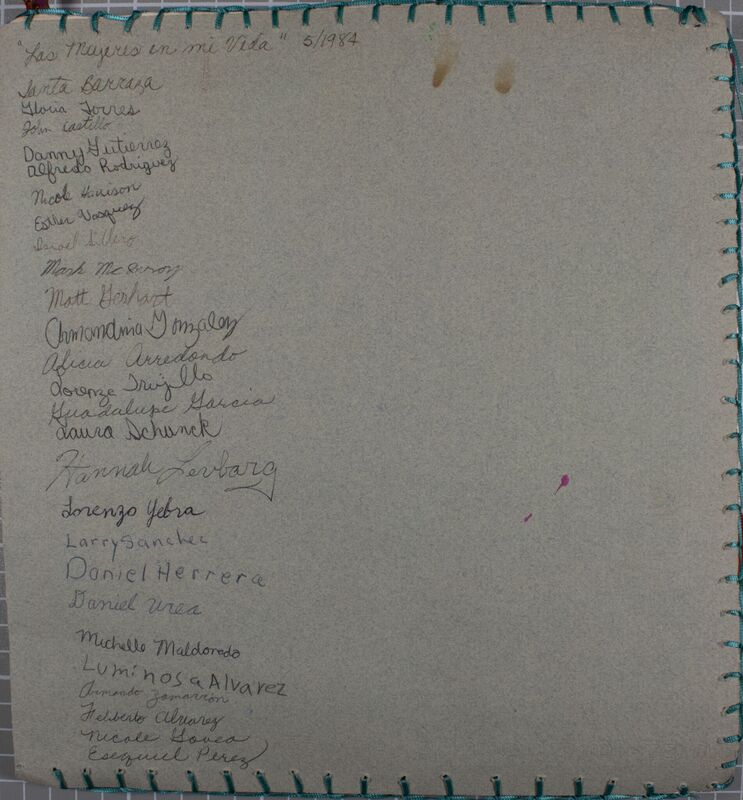 "Las Mujeres en mi Vida" 5/1984
Santa Barraza
Gloria Torres
John Castillo
Danny Gutierrez
Alfredo Rodriguez
Nicole
Esther Vasquez
Israel
Mark
Matt Gerhart
Armandina Gonzalez
Alicia Arredondo
Lorenze Trujillo
Guadalupe Garcia
Laura Schunck
Hannah Levbarg
Lorenzo Yebra
Larry Sanchez
Daniel Herrera
Daniel Urea
Michelle Maldonado
Luminosa Alvarez
Armando Zamarron
Heliberto Alvarez
Nicole Govea
Esequiel Perez